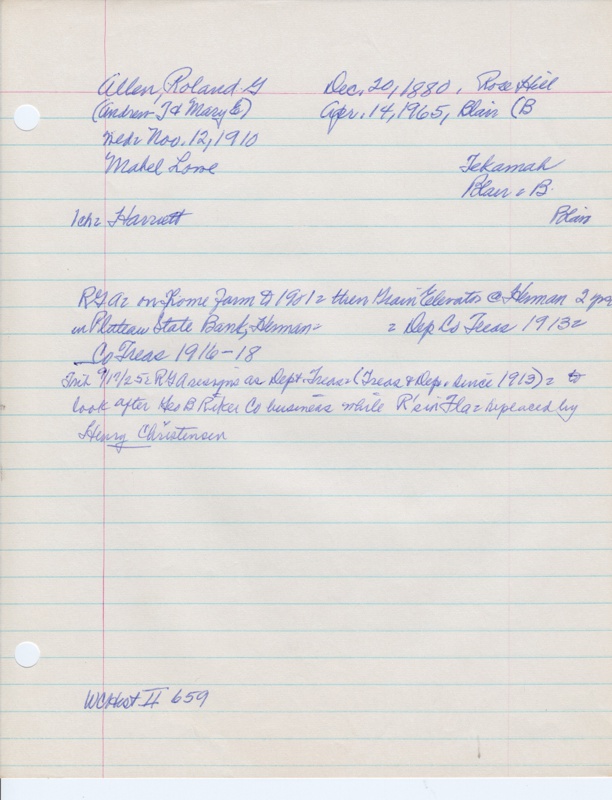 Allen, Roland G Dec. 20, 1880, Rose Hill
(Andrew T & Mary E) Apr. 14, 1965, Blair (B
Wed= Nov. 12, 1910
Mabel Lowe Tekamah
Blair = B.
1 ch= Harriett Blair
RGA= on home farm to 1901= then Grain Elevator @ Herman 2 yrs
in Plateau State Bank, Herman= = Dep Co Treas 1913=
Co Treas 1916-18
Trib 9/17/25= RGA resigns as Dep. Treas= (Treas & Dep. since 1913)= to
look after Geo B Riker Co business while R's in Fla= replaced by
Henry Christensen
WCHist II 659